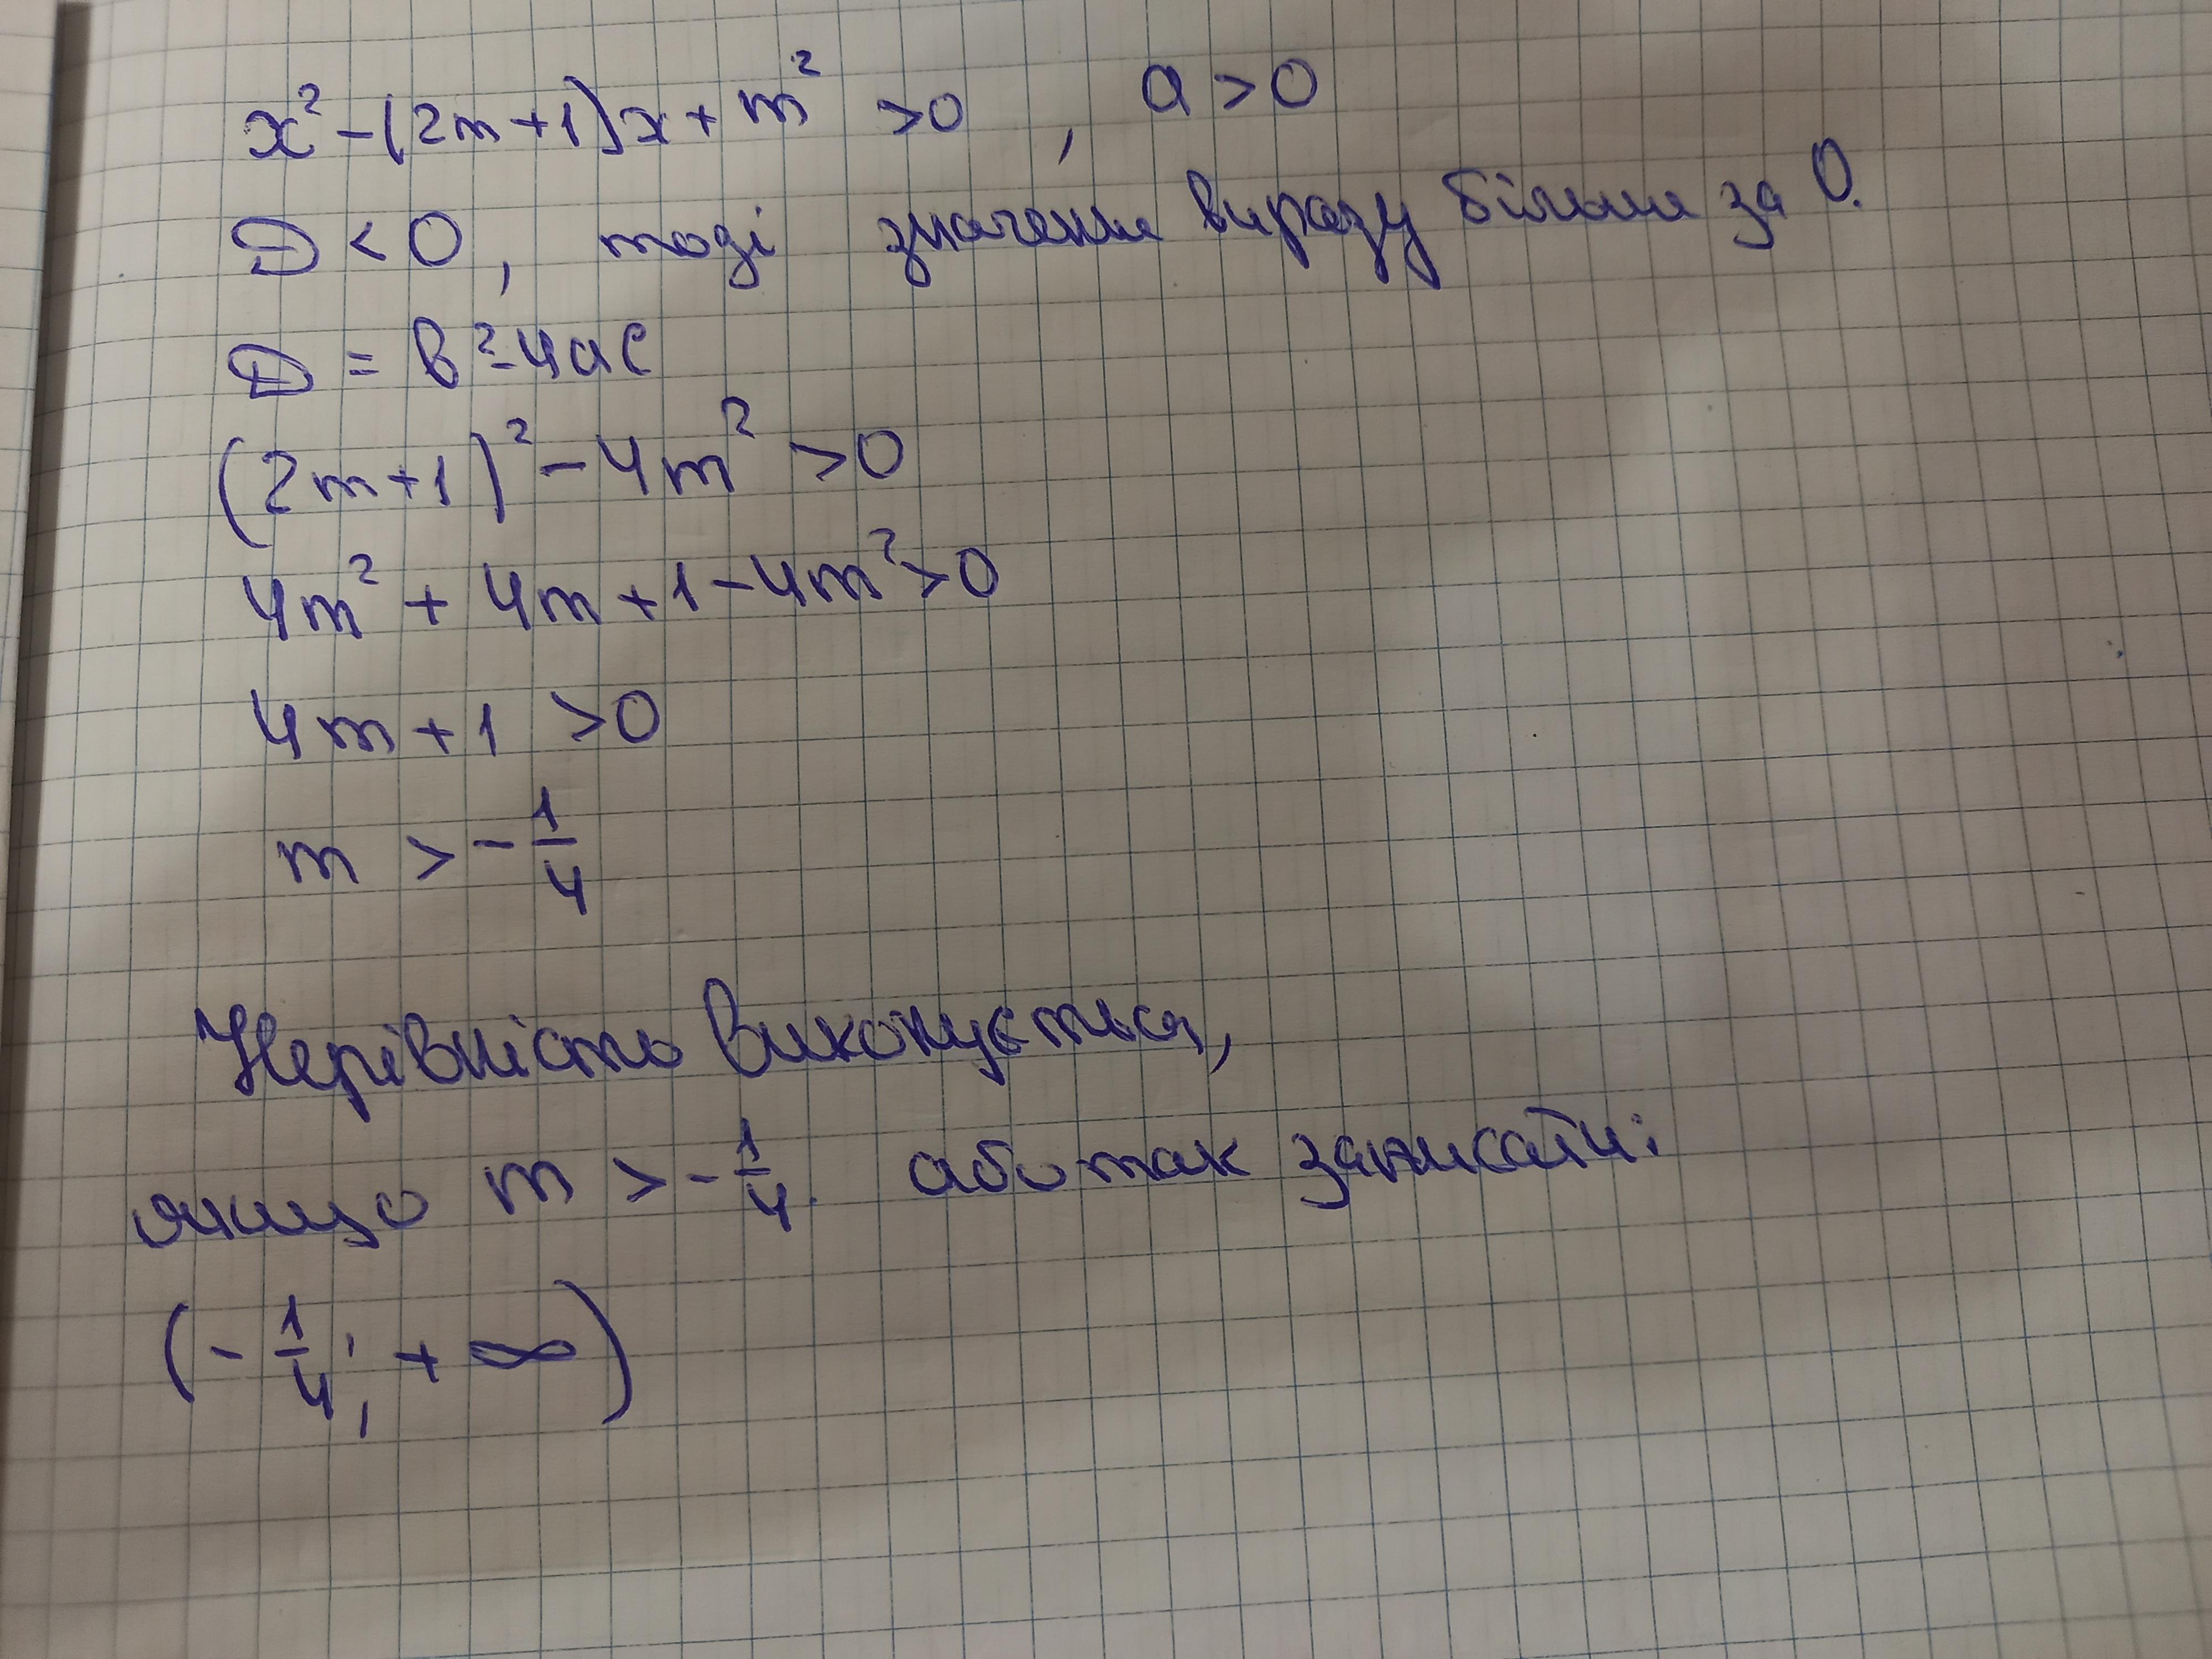 x² - (2m + 1)x + m² > 0 , a > 0
D < 0 , тоді значення виразу більше за 0.
D = b² - 4ac
(2m + 1)² - 4m² > 0
4m² + 4m + 1 - 4m² > 0
4m + 1 > 0
m > - 1/4
Нерівність виконується,
якщо m > - 1/4. або так записати:
(- 1/4; + ∞)